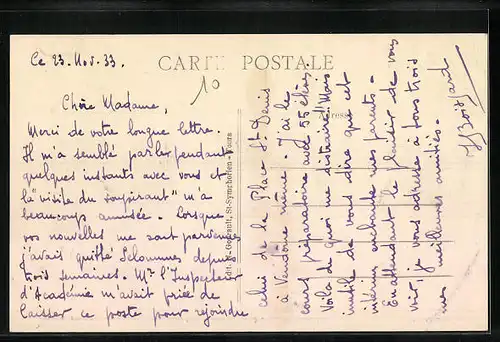 Ce 23. Nov. 33.
CARTE POSTALE
10
Chère Madame,
Merci de votre longue lettre.
Il m'a semblé parler pendant
quelques instants avec vous et
la "visite du soupirant" m'a
beaucoup amusée. Lorsque
vos nouvelles me sont parvenues
j'avais quitté Selommes depuis
trois semaines. Mr l'Inspecteur
d'Académie m'avait priée de
laisser ce poste pour rejoindre
Edit. St-Symphorien-Tours
Adresse
celui de la Place St Denis
à Vendôme même. J'ai le
cours préparatoire avec 55 élèves.
Voilà de quoi me distraire! Mais
inutile de vous dire que cet
intérim enchante mes parents.
En attendant le plaisir de vous
voir, je vous adresse à tous trois
mes meilleures amitiés.